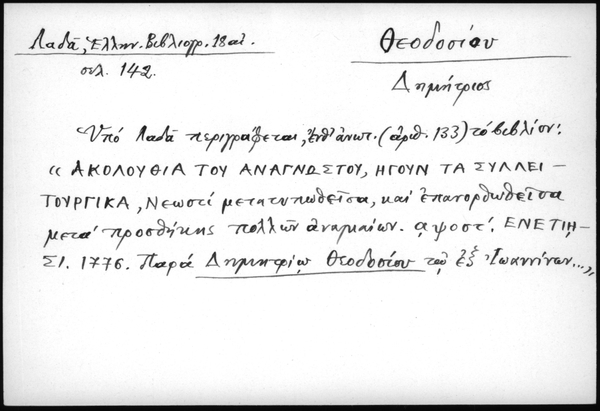 Λαδᾶ, Ἑλλην. Βιβλιογρ. 18 αἰ.
σελ. 142.
Θεοδοσίου
Δημήτριος
Ὑπό Λαδᾶ περιγράφεται, ἔνθ' ἀνωτ. (ἀριθ. 133) τό βιβλίον:
« ΑΚΟΛΟΥΘΙΑ ΤΟΥ ΑΝΑΓΝΩΣΤΟΥ, ΗΓΟΥΝ ΤΑ ΣΥΛΛΕΙ-
ΤΟΥΡΓΙΚΑ, Νεωστί μετατυπωθεῖσα, καί ἐπανορθωθεῖσα
μετά προσθήκης πολλῶν ἀναγκαίων. αψοστ΄. ΕΝΕΤΙῌ-
ΣΙ. 1776. Παρά Δημητρίῳ Θεοδοσίου τῷ ἐξ Ἰωαννίνων...»